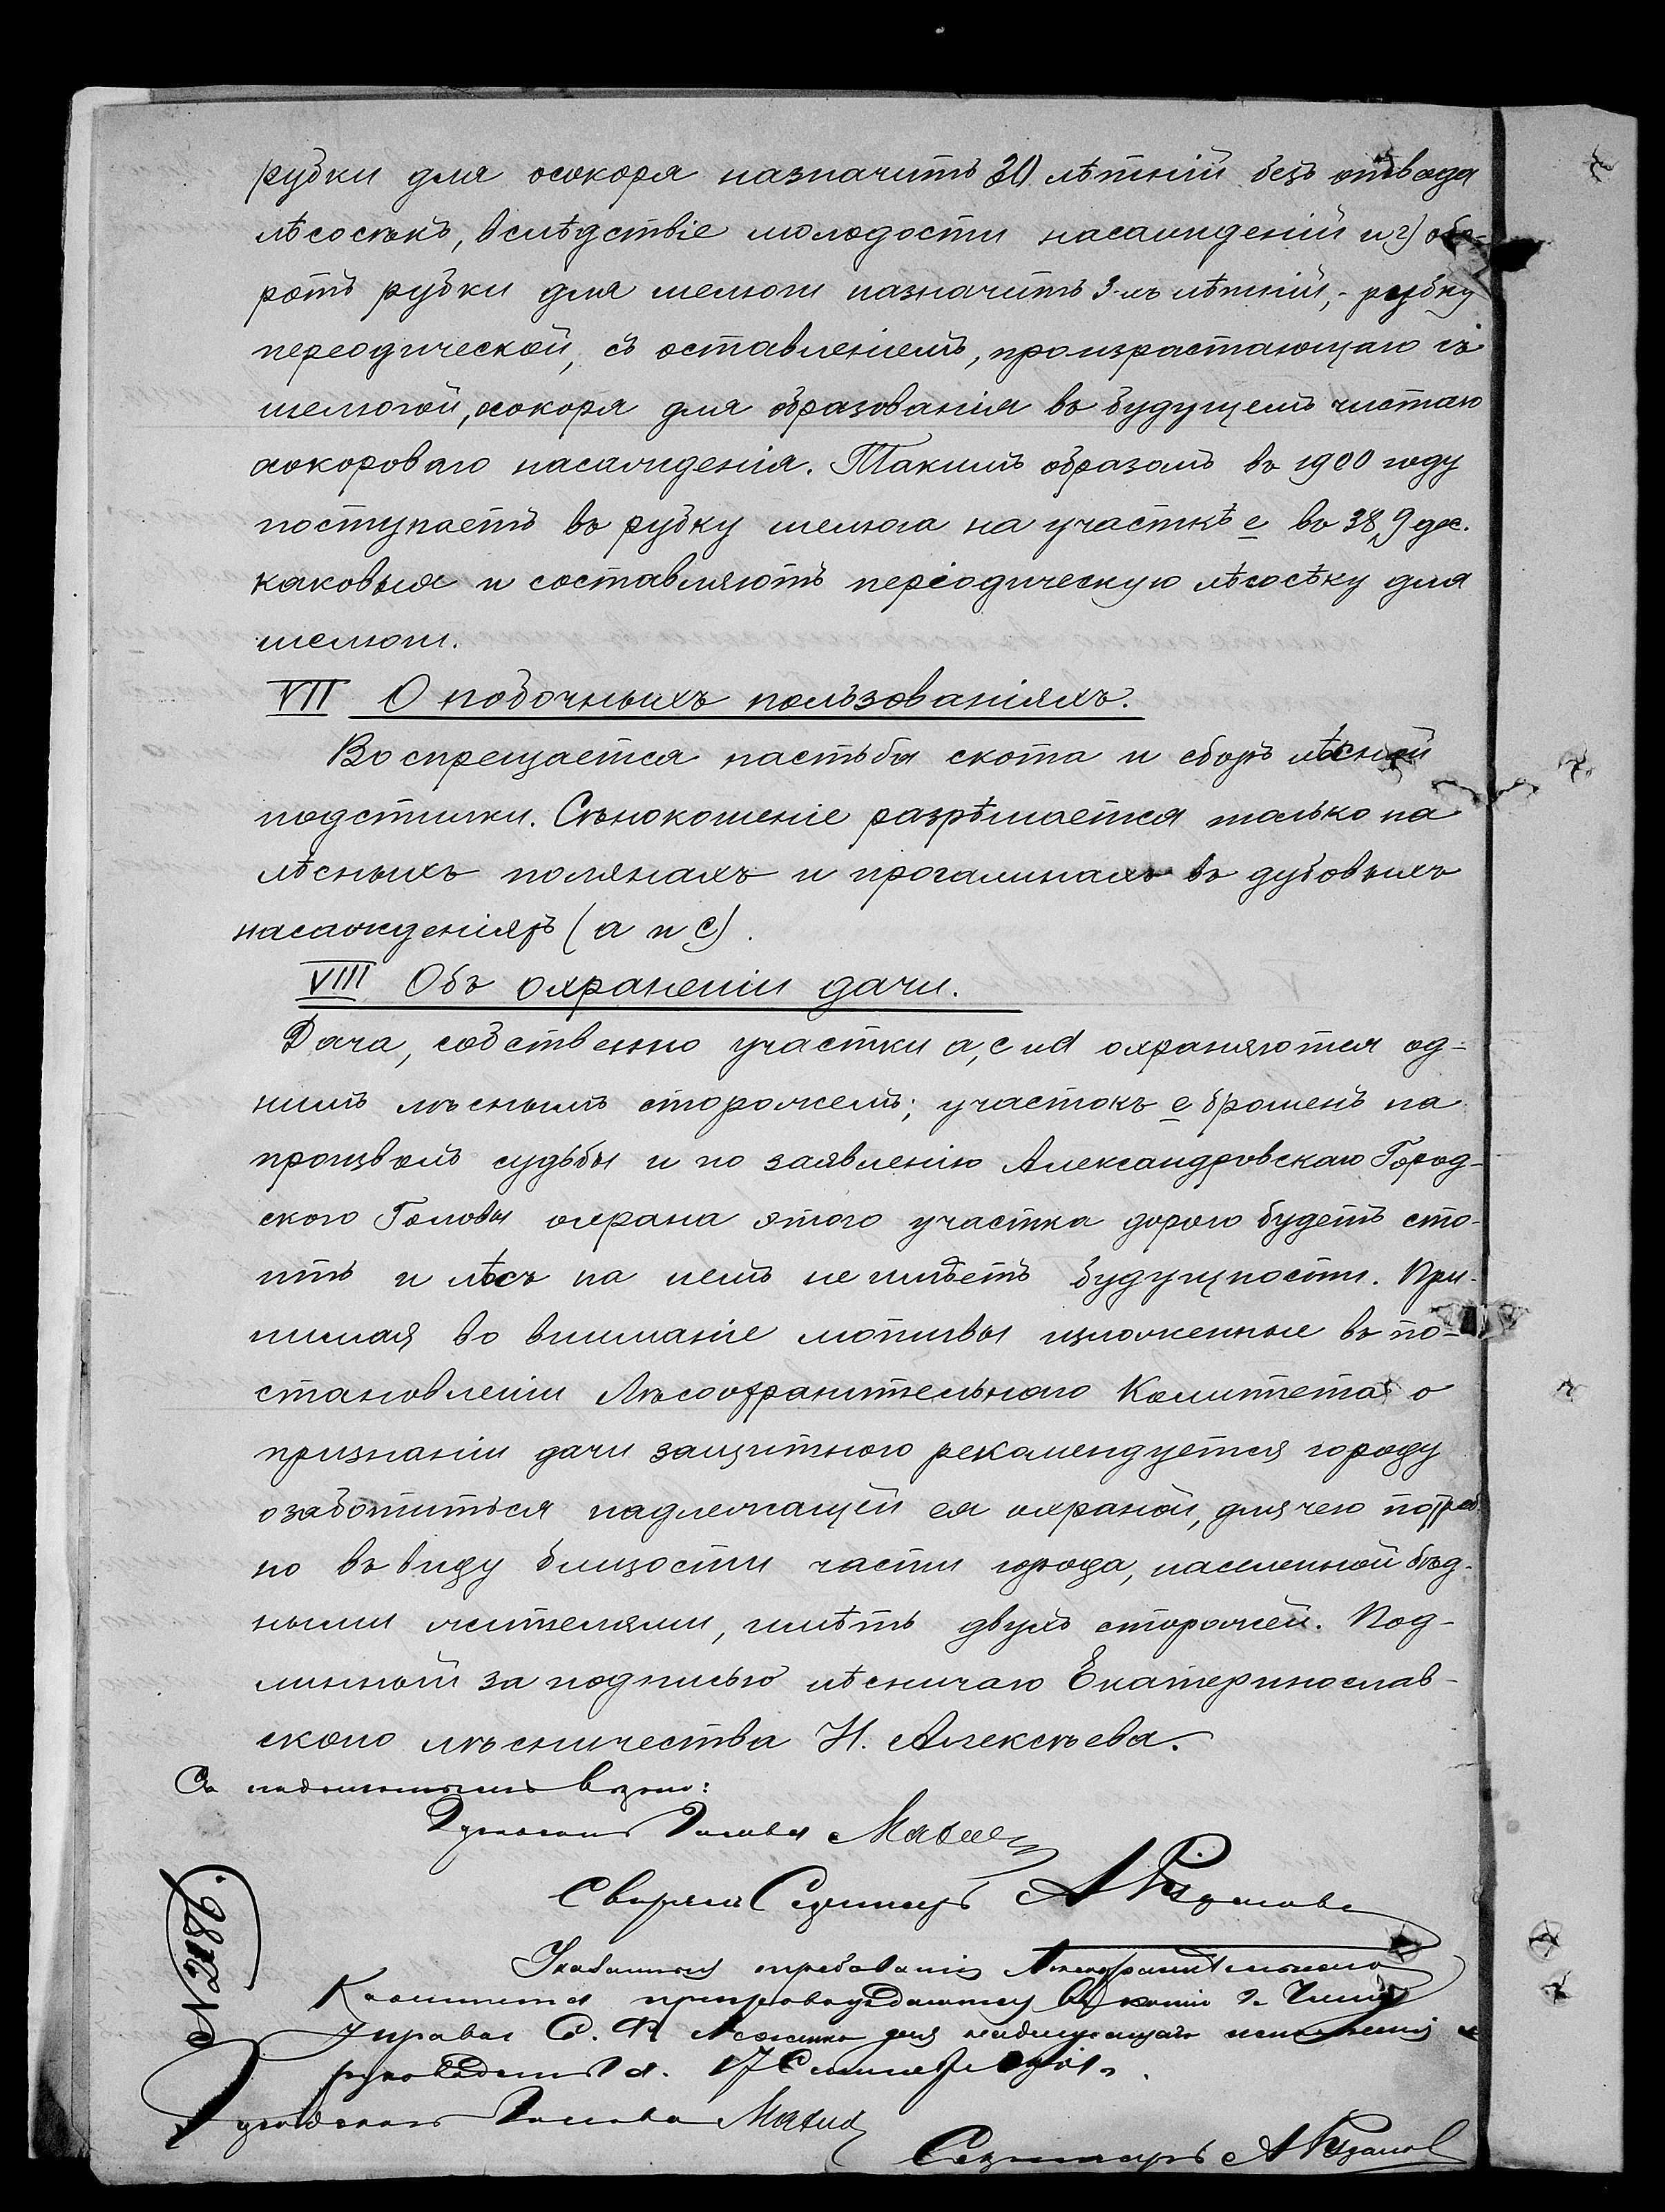 рубки для осокоря назначить 30 лѣтній безъ отвода
лѣсосѣкъ, вслѣдствіе молодости насажденій и г) обо-
ротъ рубки для шелюги назначить 3-хъ лѣтній,- рубку
переодической, съ оставленіемъ, произрастающаго съ
шелюгой, осокоря для образованія въ будущемъ чистаго
осокороваго насажденія. Такимъ образомъ въ 1900 году
поступаетъ въ рубку шелюга на участкѣ е въ 38,9 дес.
каковыя и составляютъ періодическую лѣсосѣку для
шелюги.
VII О побочныхъ пользованіяхъ.
Воспрещается пастьба скота и сборъ лѣсной
подстилки. Сѣнокошеніе разрѣшается только на
лѣсныхъ полянахъ и прогалинахъ въ дубовыхъ
насажденіяхъ (а и с).
VIII Объ охраненіи дачи.
Дача, собственно участки а, с и d охраняются од-
нимъ лѣснымъ сторожемъ; участокъ е брошенъ на
произволъ судьбы и по заявленію Александровскаго Город-
ского Головы охрана этого участка дорого будетъ сто-
ить и лѣсъ на немъ не имѣетъ будущности. При-
нимая во вниманіе мотивы изложенные въ по-
становленіи Лѣсоохранительнаго Комитета о
признаніи дачи защитного рекомендуется городу
озаботиться надлежащей ея охраной, для чего потреб-
но въ виду близости части города, населенной бѣд-
ными жителями, имѣть двухъ сторожей. Под-
линный за подписью лѣсничаго Екатеринослав-
скаго лѣсничества Н. Алексѣева.
Съ подлиннымъ вѣрно:
Городской Голова
Свѣрялъ Секретарь
№ 2186.
Лѣсоохранительнаго
Комитета препровождаются въ копіи Члену
Управы для надлежащаго исполненія и
руководства. 17 Сентября 1901 г.
Городской Голова
Секретарь